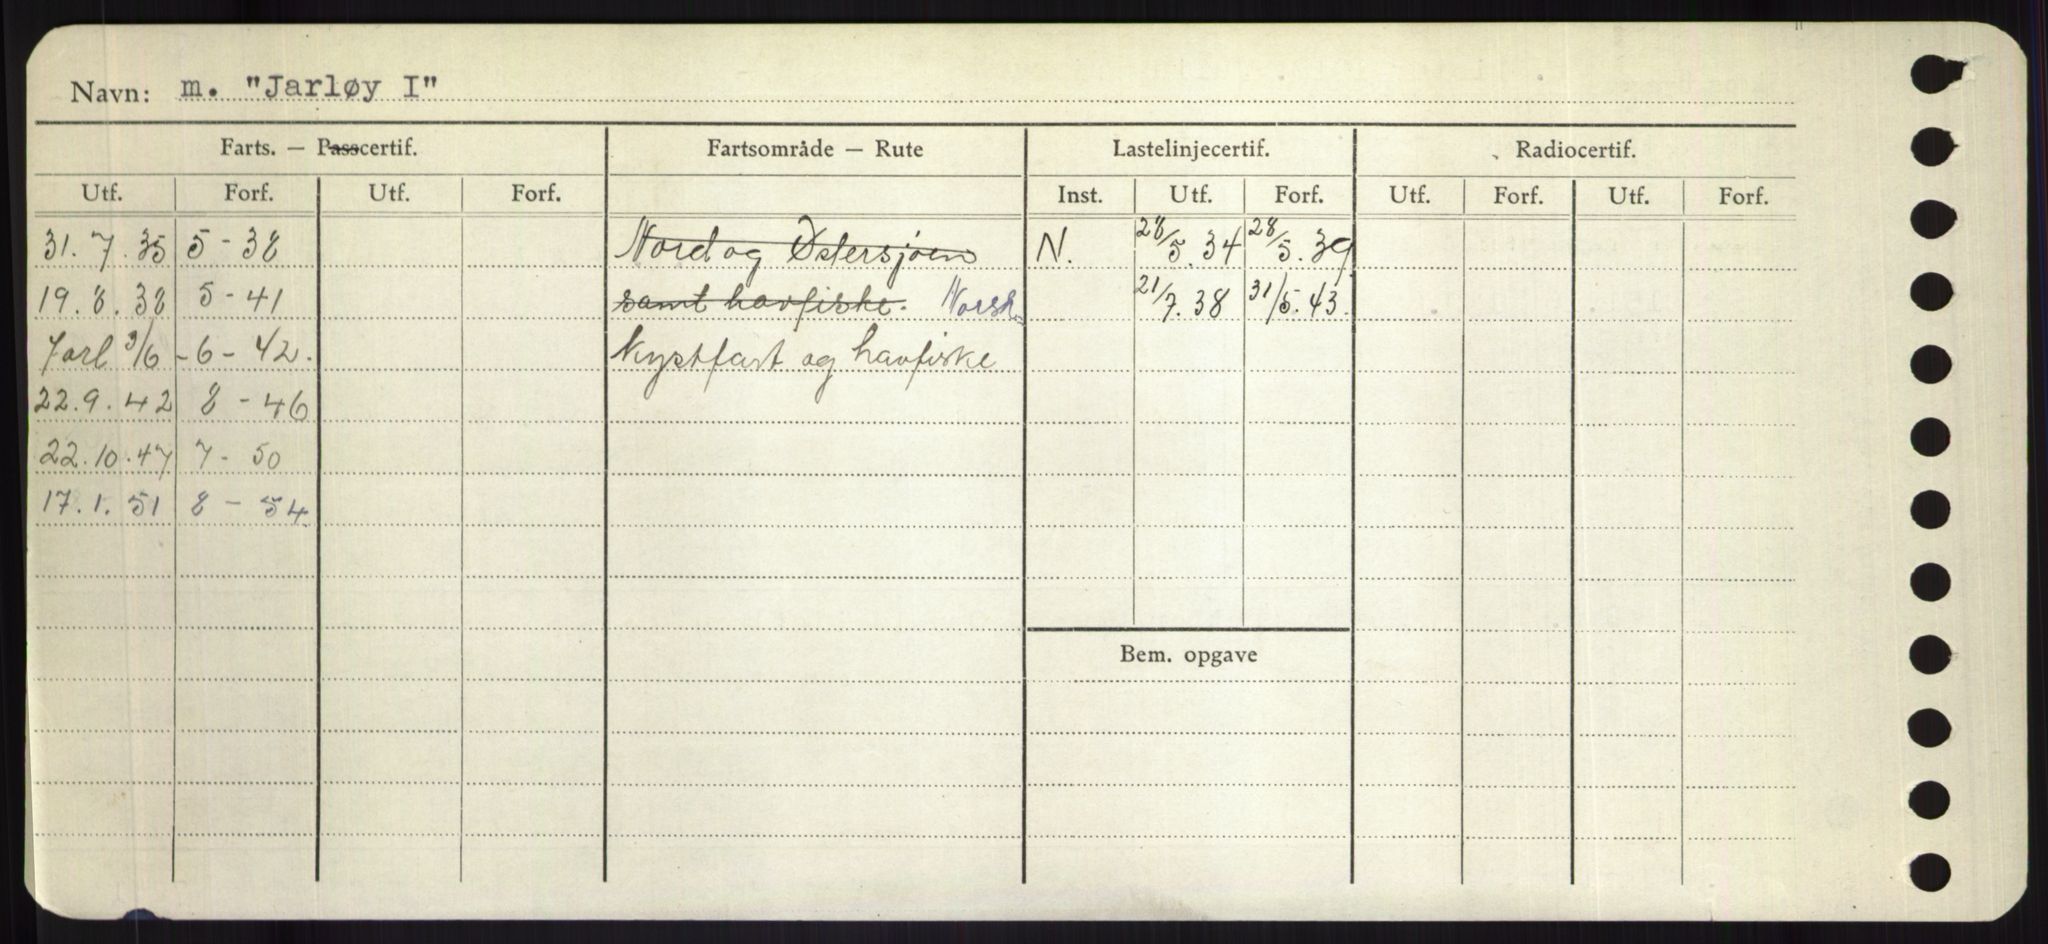 Navn: m. "Jarløy I"
Farts. — Passcertif. Fartsområde — Rute Lastelinjecertif. Radiocertif.
Utf. Forf. Utf. Forf. Inst. Utf. Forf. Utf. Forf. Utf. Forf.
31. 7. 35 5 - 38 Nord og Østersjøen N. 28/5. 34 28/5. 39
19. 8. 38 5 - 41 samt havfiske. Norsk 21/7. 38 31/5. 43.
Forl 3/6 - 6 - 42. kystfart og havfiske
22. 9. 42 8 - 46
22. 10. 47 7 - 50
17. 1. 51 8 - 54
Bem. opgave